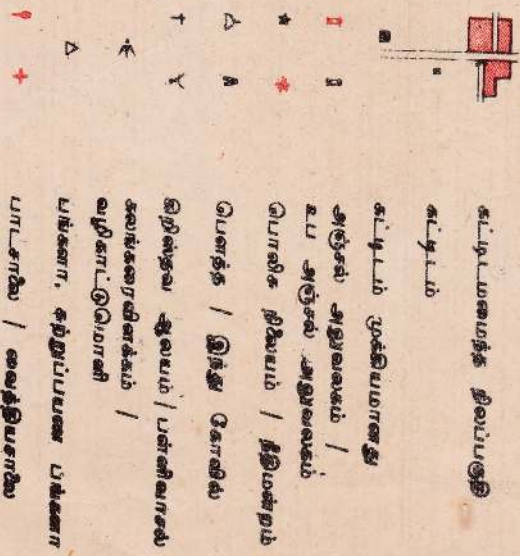 கட்டிடமமைந்த நிலப்பகுதி
கட்டிடம்
கட்டிடம் முக்கியமானது
அஞ்சல் அலுவலகம் /
உப அஞ்சல் அலுவலகம்
பொலிசு நிலையம் / நீதிமன்றம்
பௌத்த / இந்து கோவில்
கிறிஸ்தவ ஆலயம் / பள்ளிவாசல்
கலங்கரைவிளக்கம் /
வழிகாட்டுமானி
பங்களா, சுற்றுப்பயண பங்களா
பாடசாலை / வைத்தியசாலை